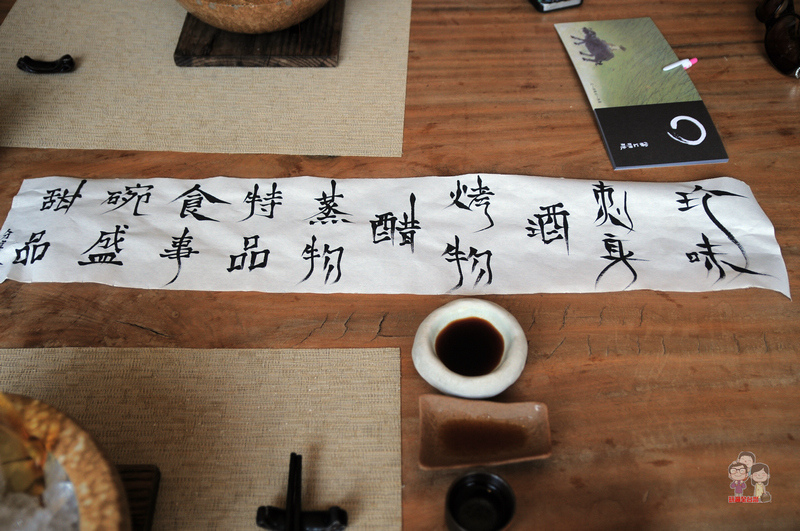 珍味
刺身
酒
烤物
醋
蒸物
特品
食事
碗盛
甜品